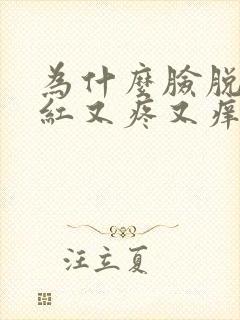 為什麼臉脫
紅又疼又痒
汪立夏